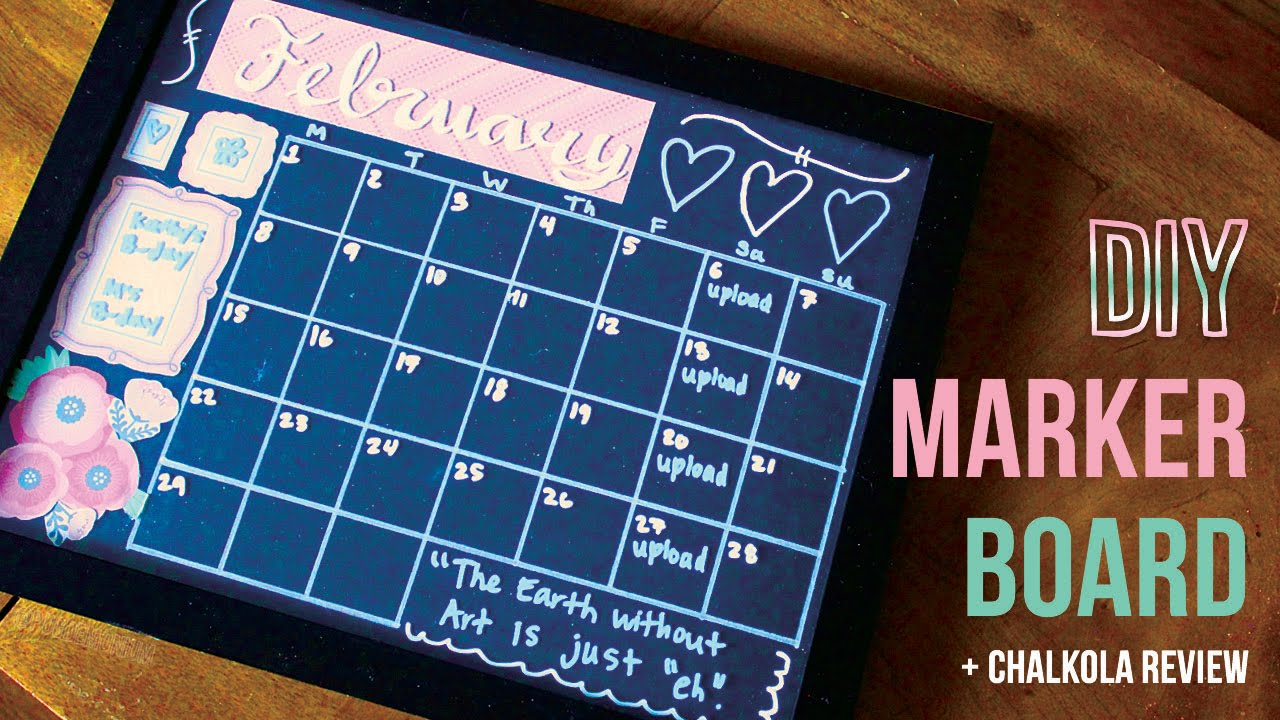 February
M T W Th F Sa Su
1 2 3 4 5 6 7
upload
8 9 10 11 12 13 14
upload
15 16 17 18 19 20 21
upload
22 23 24 25 26 27 28
upload
29
Kathy's
B-day
M's
B-day
"The Earth without
Art is just "eh".
DIY
MARKER
BOARD
+ CHALKOLA REVIEW